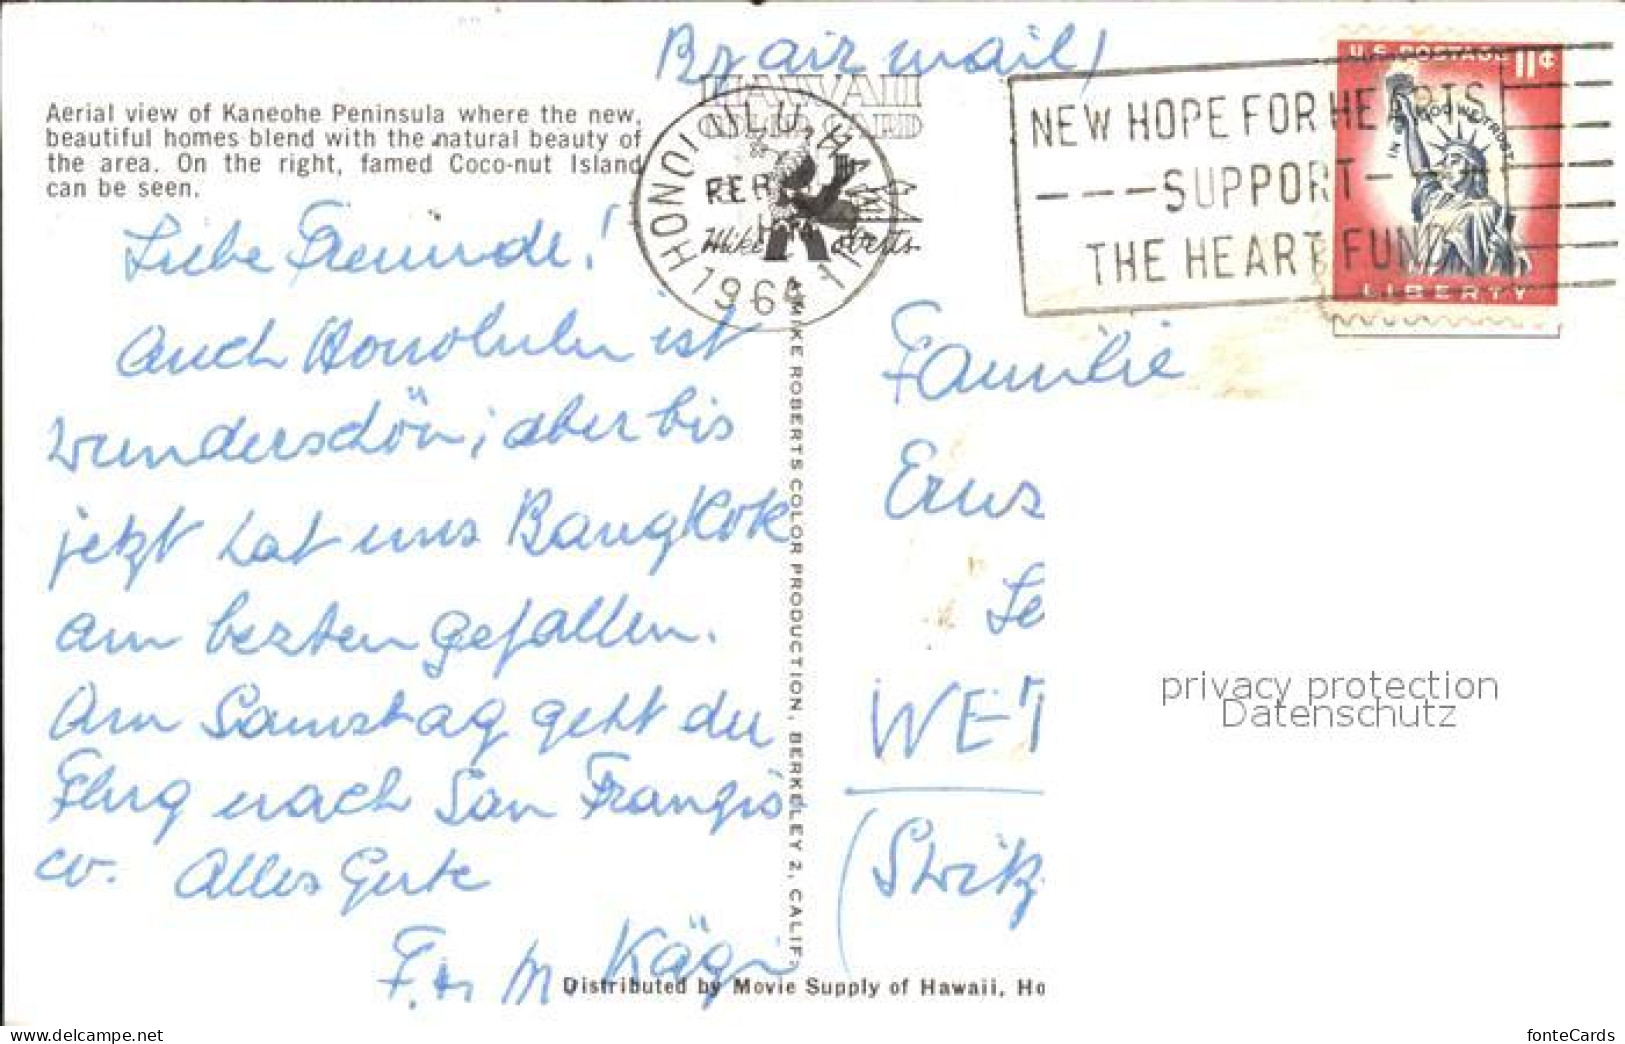 By air mail!
HAWAII
Aerial view of Kaneohe Peninsula where the new,
beautiful homes blend with the natural beauty of
the area. On the right, famed Coco-nut Island
can be seen.
HONOLULU, HAWAII
FEB
196
Mike Roberts
NEW HOPE FOR HEARTS
---SUPPORT-
THE HEART FUND
U.S. POSTAGE 11¢
IN GOD WE TRUST
LIBERTY
Liebe Freunde!
Auch Honolulu ist
wunderschön; aber bis
jetzt hat uns Bangkok
am besten gefallen.
Am Samstag geht der
Flug nach San Franzis
co. Alles Gute
F. u M. Kägi
A MIKE ROBERTS COLOR PRODUCTION, BERKELEY 2, CALIF.
Familie
Erns
Le
WET
(Switz
privacy protection
Datenschutz
Distributed by Movie Supply of Hawaii, Ho
www.ansichtskarten-center.de
fonteCards